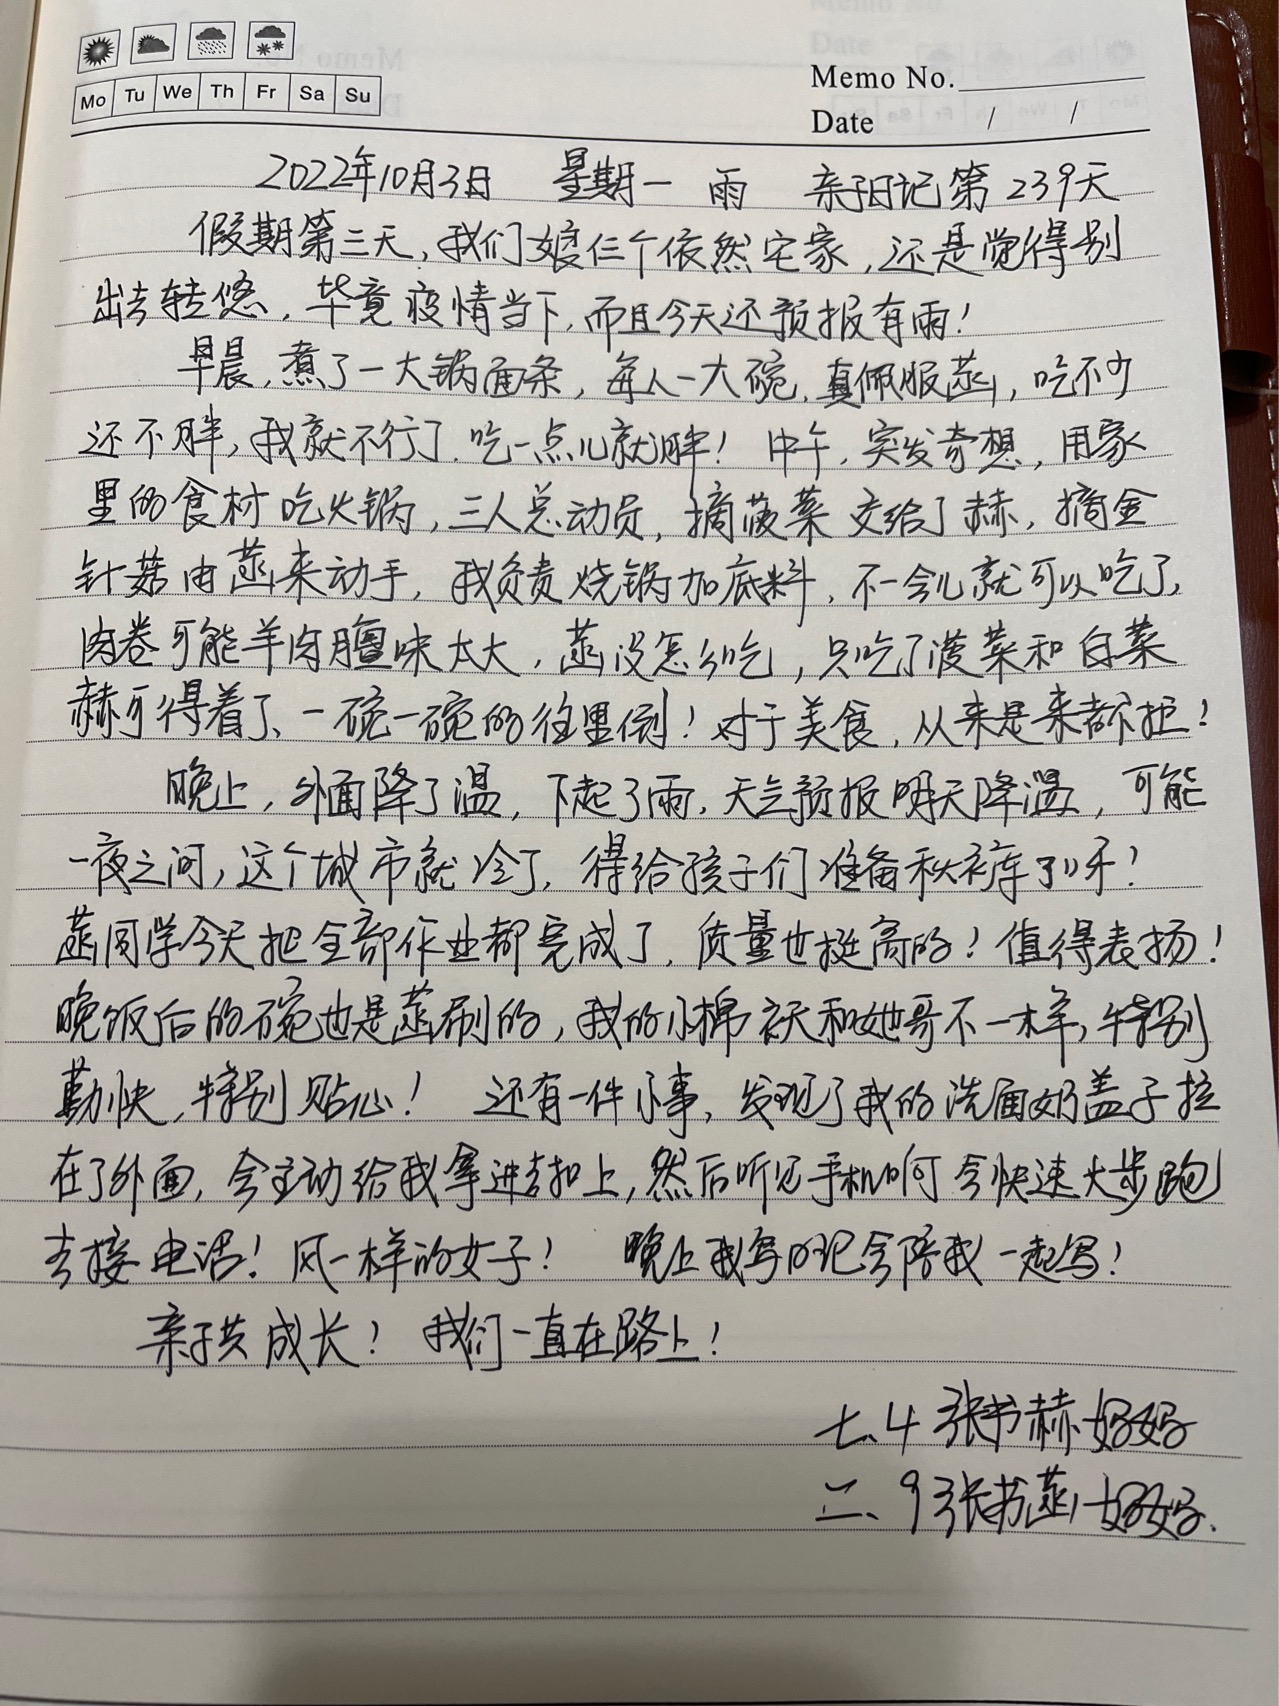 Mo Tu We Th Fr Sa Su
Memo No.
Date / /
2022年10月3日 星期一 雨 亲子日记第239天
假期第三天,我们娘仨个依然宅家,还是觉得别
出去转悠,毕竟疫情当下,而且今天还预报有雨!
早晨,煮了一大锅面条,每人一大碗,真佩服,吃不少
还不胖,我就不行了,吃一点儿就胖!中午,突发奇想,用家
里的食材吃火锅,三人总动员,摘菠菜交给了赫,摘金
针菇由来动手,我负责烧锅加底料,不一会儿就可以吃了,
肉卷可能羊肉膻味太大,没怎么吃,只吃了菠菜和白菜
赫可得着了、一碗一碗的往里倒!对于美食,从来是来者不拒!
晚上,外面降了温,下起了雨,天气预报明天降温,可能
一夜之间,这个城市就冷了,得给孩子们准备秋裤了呀!
同学今天把全部作业都完成了,质量也挺高的!值得表扬!
晚饭后的碗也是刷的,我的小棉袄和她哥不一样,特别
勤快,特别贴心!还有一件小事,发现了我的洗面奶盖子拉
在了外面,会主动给我拿进去扣上,然后听见手机响会快速大步跑
去接电话!风一样的女子!晚上我写日记会陪我一起写!
亲子共成长!我们一直在路上!
七、4 张书赫妈妈
二、9 张书妈妈.